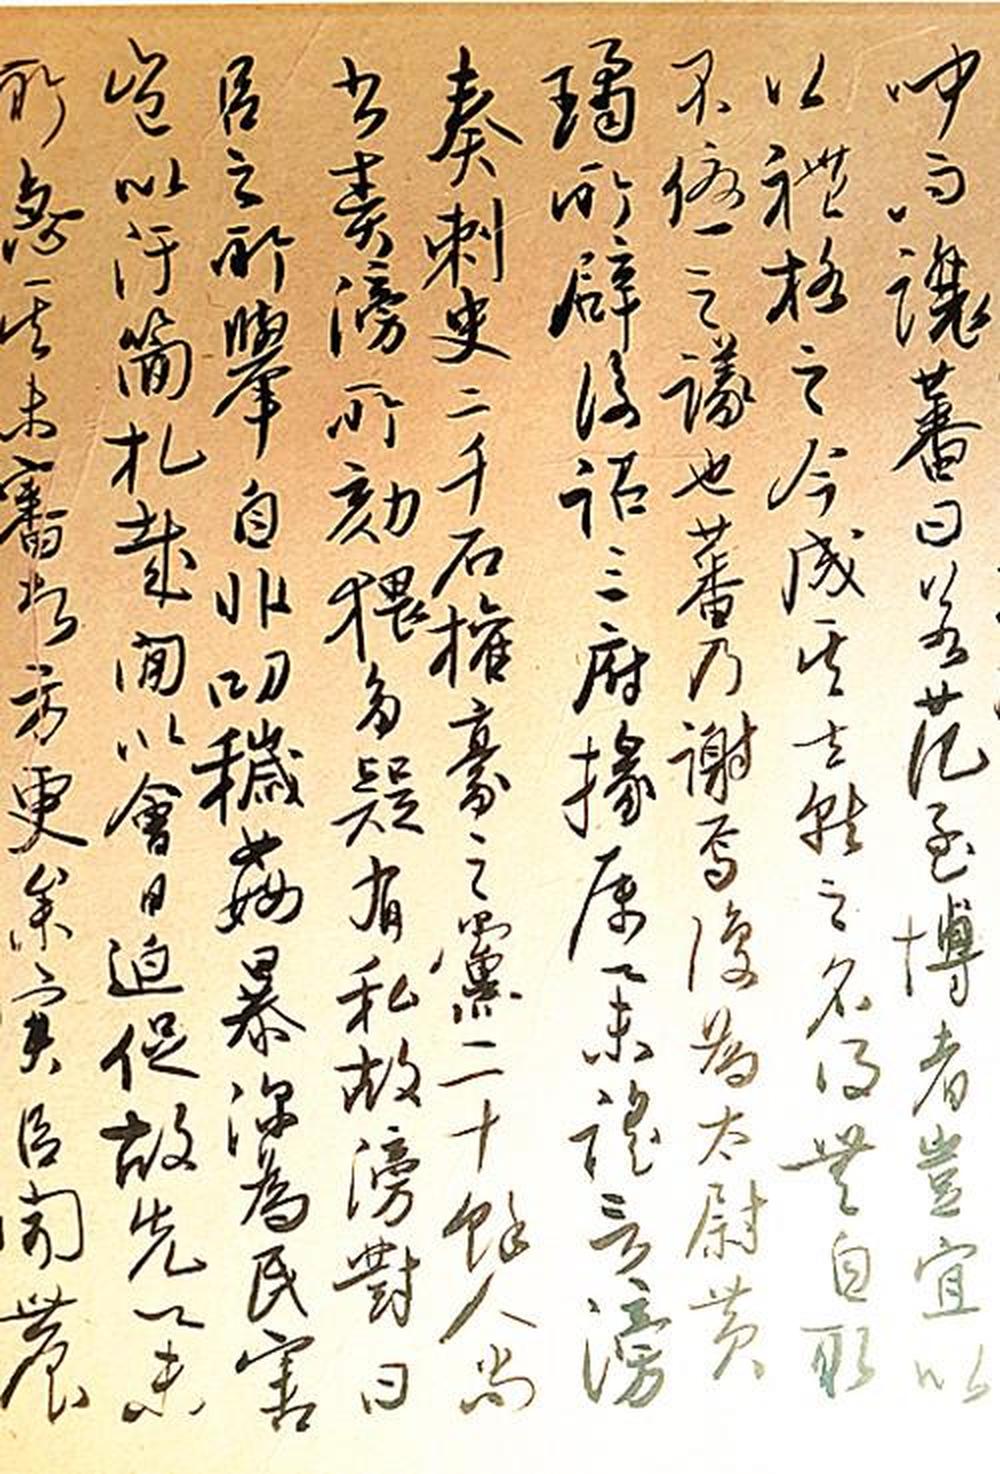 聞而讓蕃曰若范孟博者豈宜以
公禮格之今成其去就之名得無自取
不優之議也蕃乃謝焉復為太尉黃
瓊所辟後詔三府掾屬舉謠言滂
奏刺史二千石權豪之黨二十餘人尚
書責滂所劾猥多疑有私故滂對曰
臣之所舉自非叨穢姦暴深為民害
豈以汙簡札哉閒以會日迫促故先舉
所急其未審者方更參實臣聞農